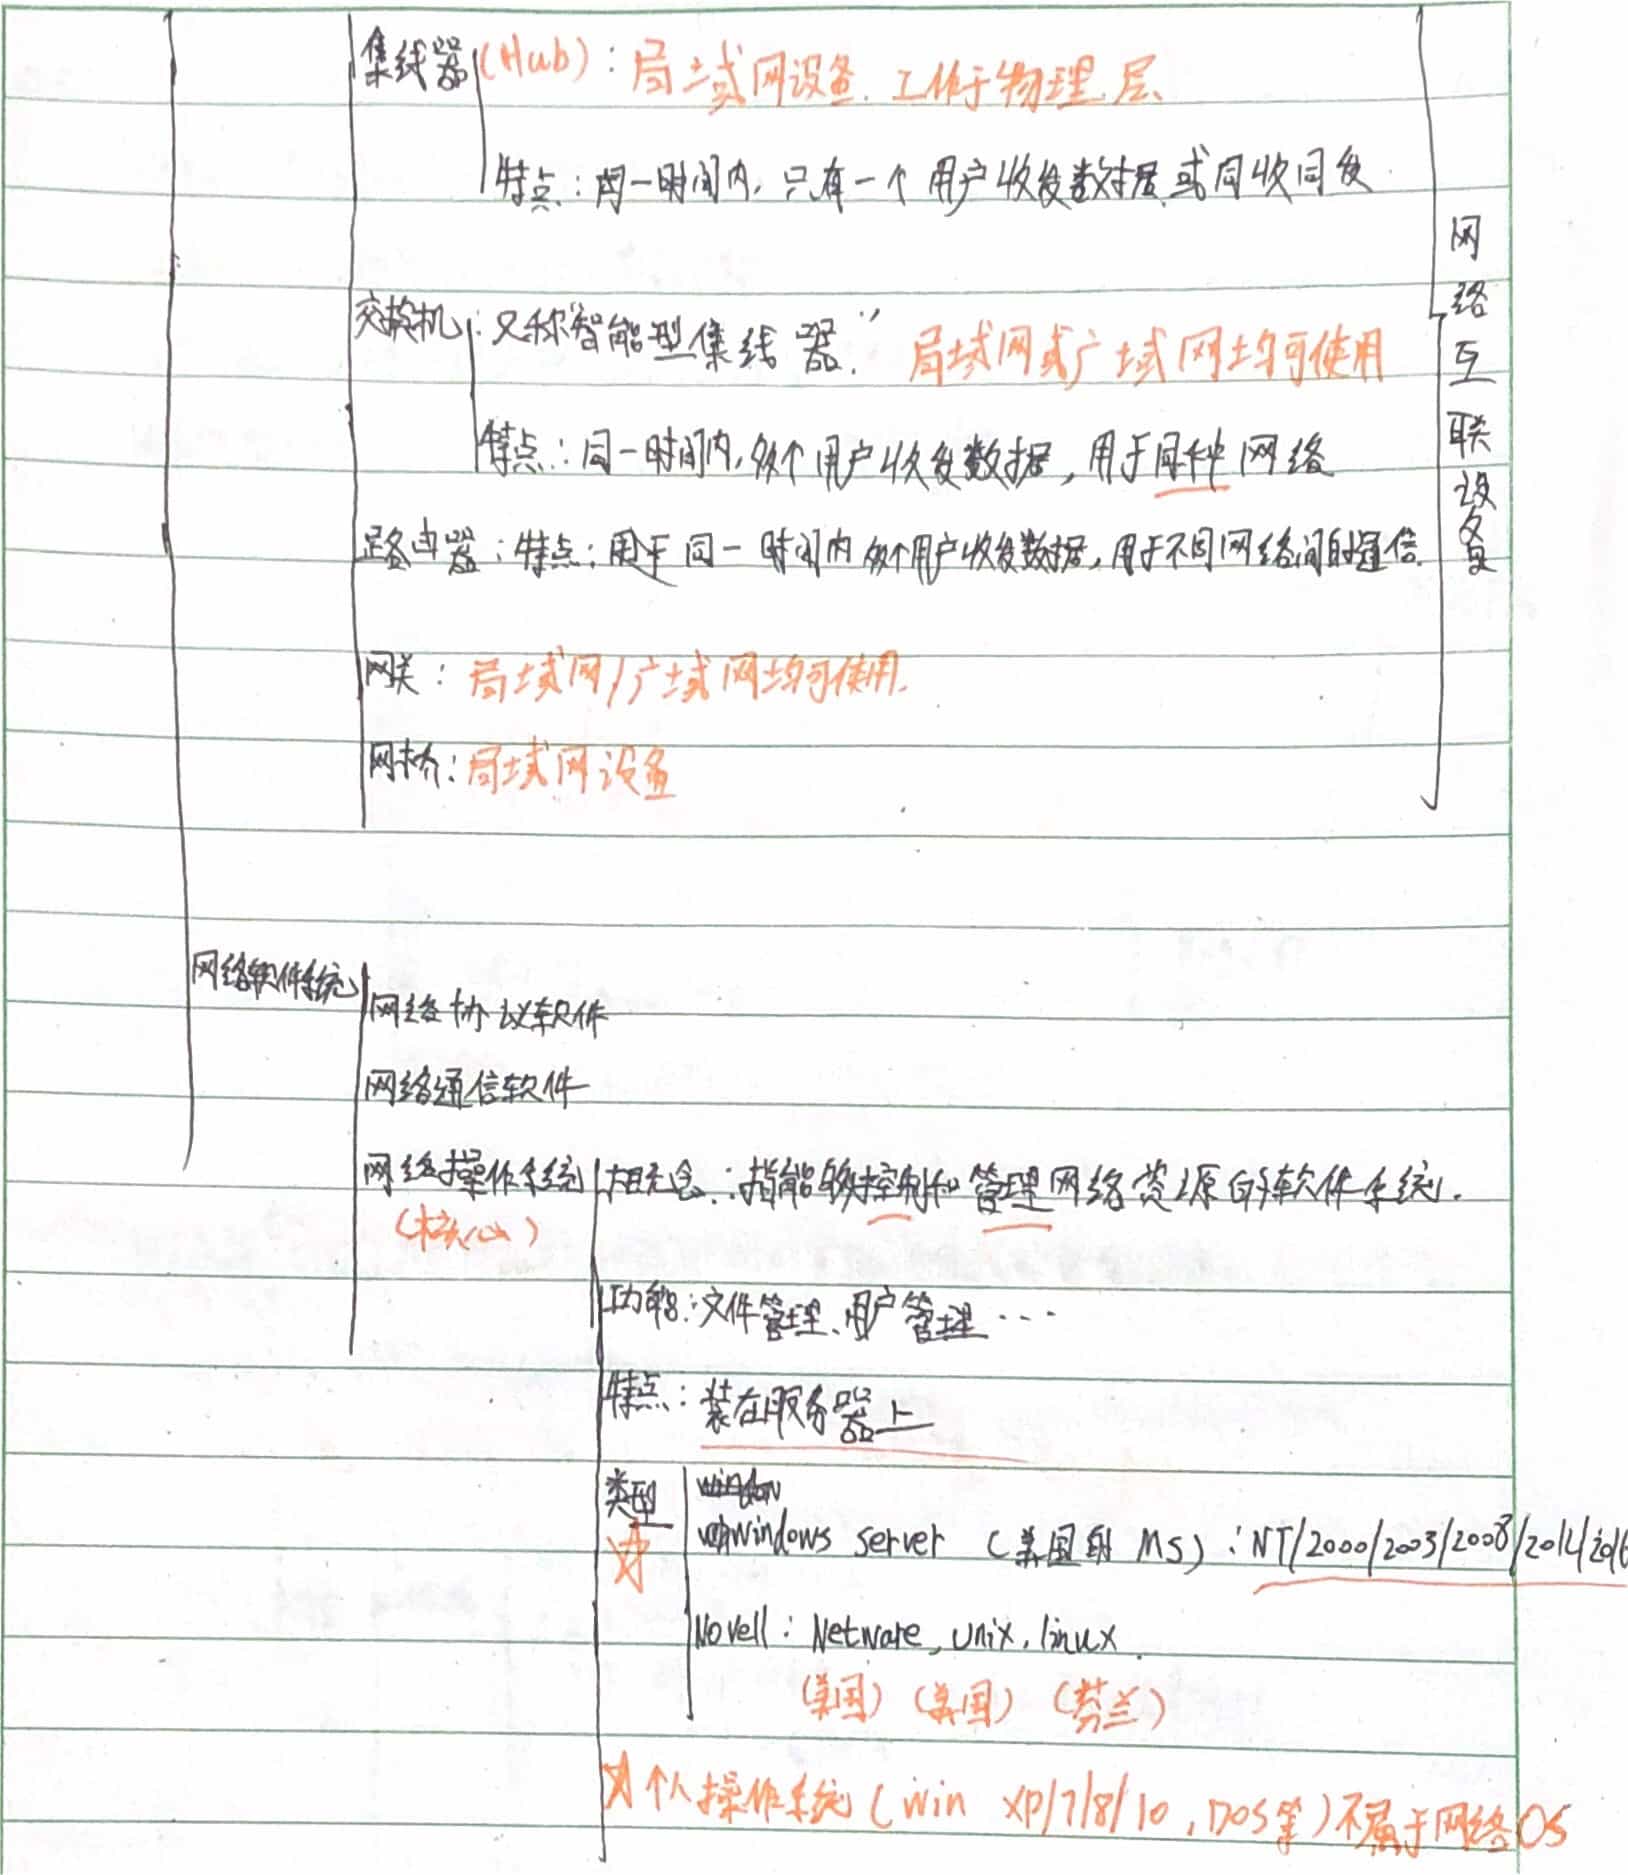 集线器(Hub)：局域网设备.工作于物理层.
特点：同一时间内,只有一个用户收发数据或同收同发.
交换机：又称"智能型集线器." 局域网或广域网均可使用
特点：同一时间内,多个用户收发数据,用于同种网络
路由器：特点：用于同一时间内多个用户收发数据,用于不同网络间的通信.
网关：局域网/广域网均可使用.
网桥：局域网设备
网络互联设备
网络软件系统
网络协议软件
网络通信软件
网络操作系统 概念：指能够控制和管理网络资源的软件系统.
(核心)
功能：文件管理、用户管理…
特点：装在服务器上
类型
windows server (美国的 MS)：NT/2000/2003/2008/2012/2016
Novell：Netware,unix,linux.
(美国) (美国) (芬兰)
☆个人操作系统(win xp/7/8/10,DOS等)不属于网络OS